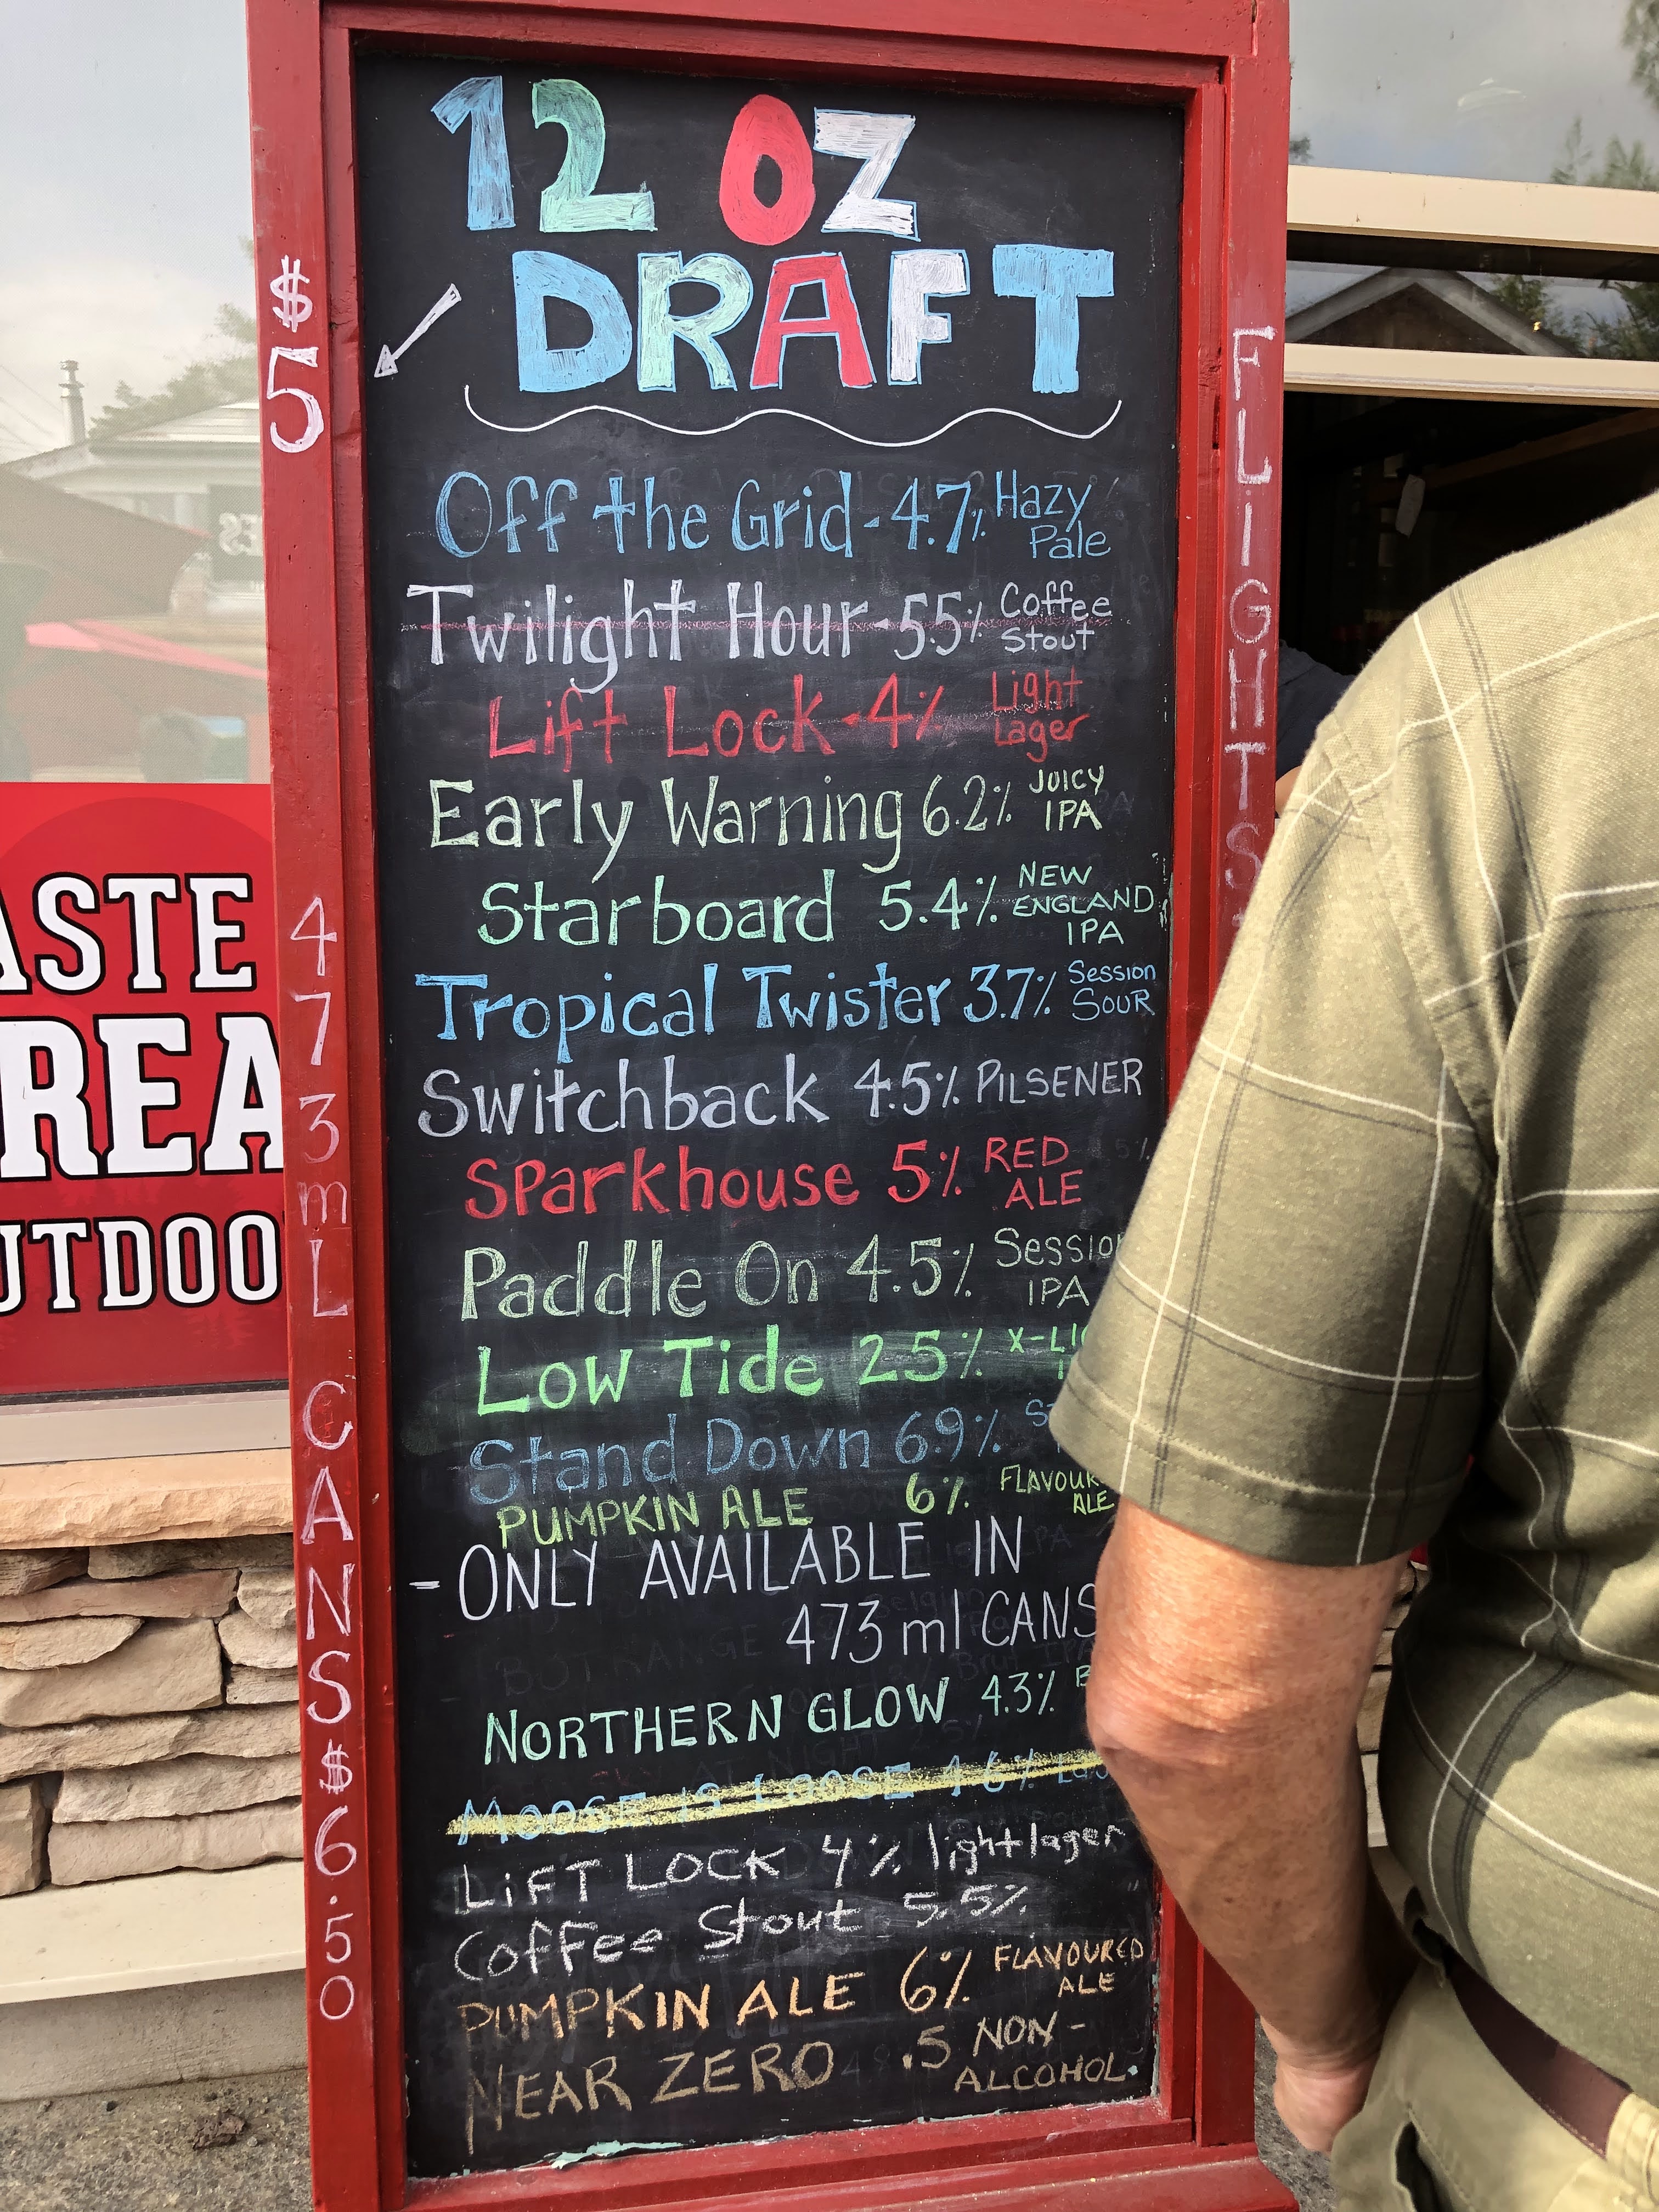 12 OZ
DRAFT
$5
Off the Grid - 4.7% Hazy Pale
Twilight Hour - 5.5% Coffee Stout
Lift Lock - 4% Light Lager
Early Warning 6.2% JUICY IPA
Starboard 5.4% NEW ENGLAND IPA
Tropical Twister 3.7% Session SOUR
Switchback 4.5% PILSENER
Sparkhouse 5% RED ALE
Paddle On 4.5% Sessio IPA
Low Tide 2.5% X-LI
Stand Down 6.9%
PUMPKIN ALE 6% FLAVOUR ALE
- ONLY AVAILABLE IN
473 ml CANS
NORTHERN GLOW 4.3%
MOOSE IS LOOSE 4.6%
LiFT LOCK 4% lightlager
Coffee Stout 5.5%
PUMPKIN ALE 6% FLAVOURED ALE
NEAR ZERO .5 NON-ALCOHOL.
473mL CANS $6.50
FLIGHTS
ASTE
REA
UTDOO